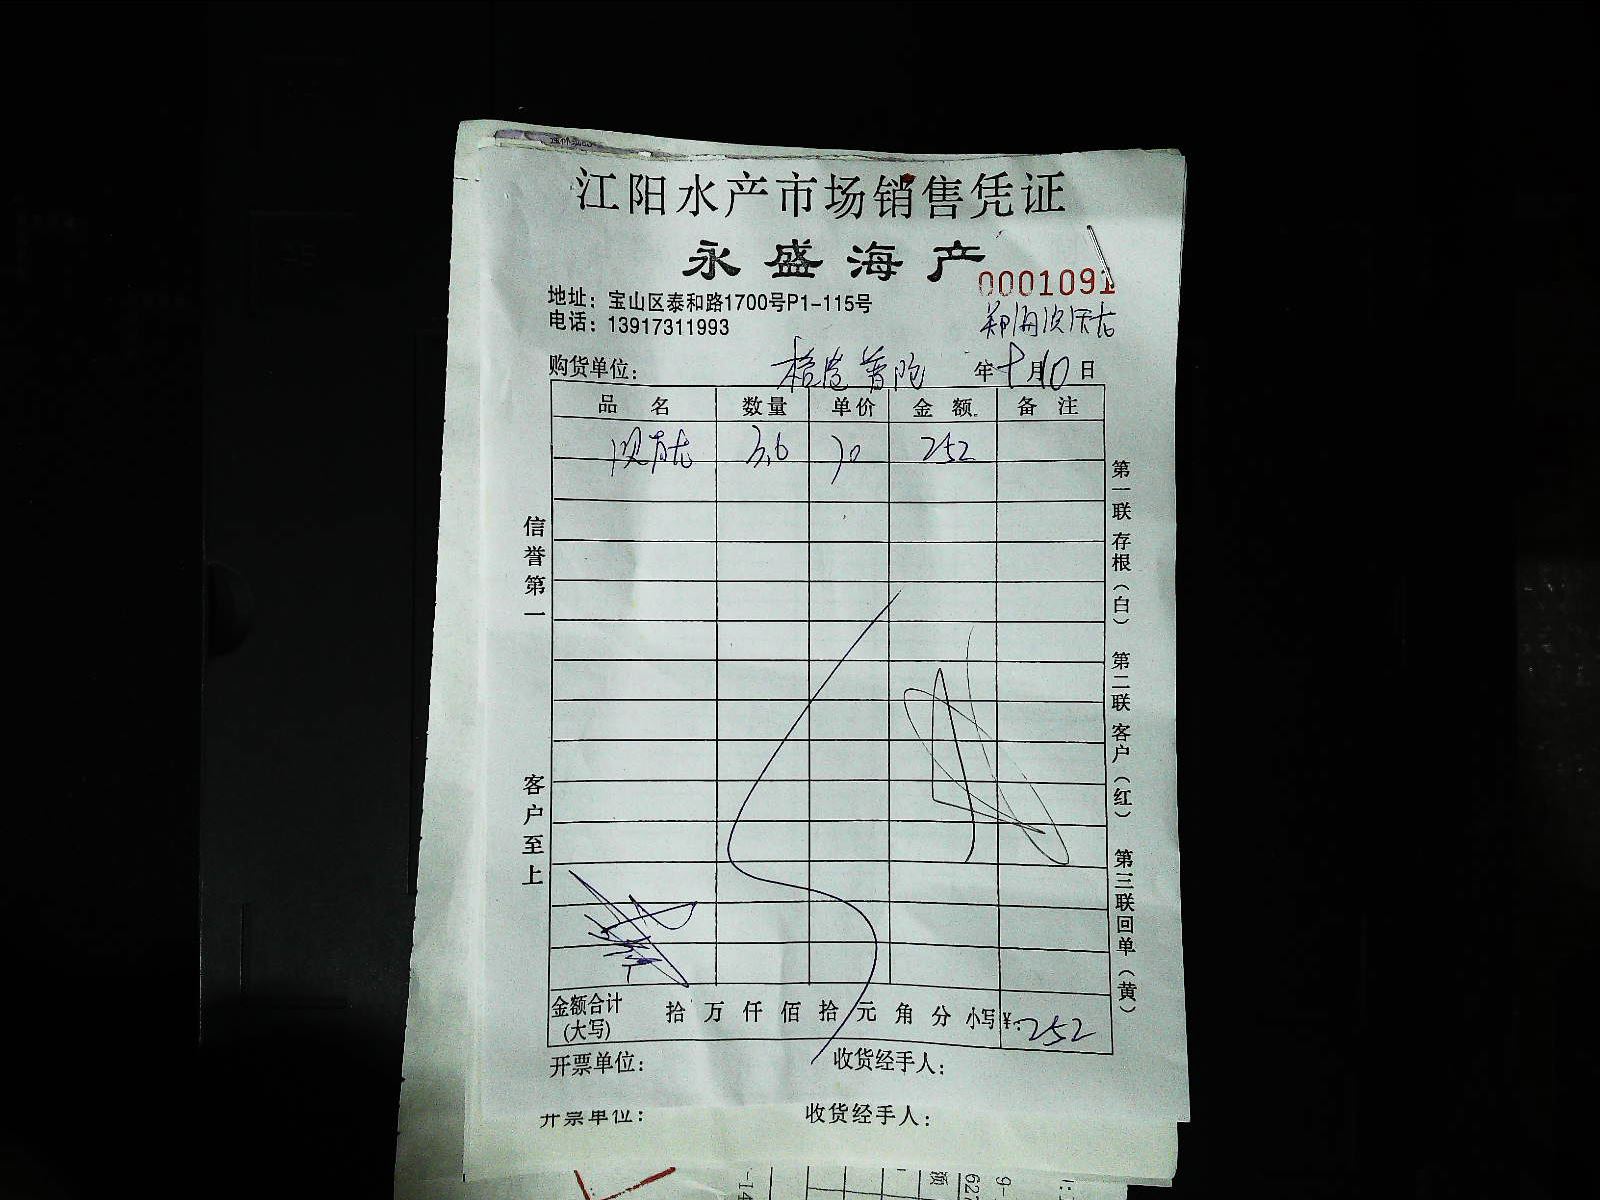 江阳水产市场销售凭证
永盛海产
0001091
地址：宝山区泰和路1700号P1-115号
电话：13917311993
购货单位： 普陀 年十月10日
品名 数量 单价 金额 备注
3.6 70 252
信誉第一
客户至上
第一联 存根（白） 第二联 客户（红） 第三联 回单（黄）
金额合计（大写） 拾 万 仟 佰 拾 元 角 分 小写 ¥：252
开票单位： 收货经手人：
开票单位： 收货经手人：